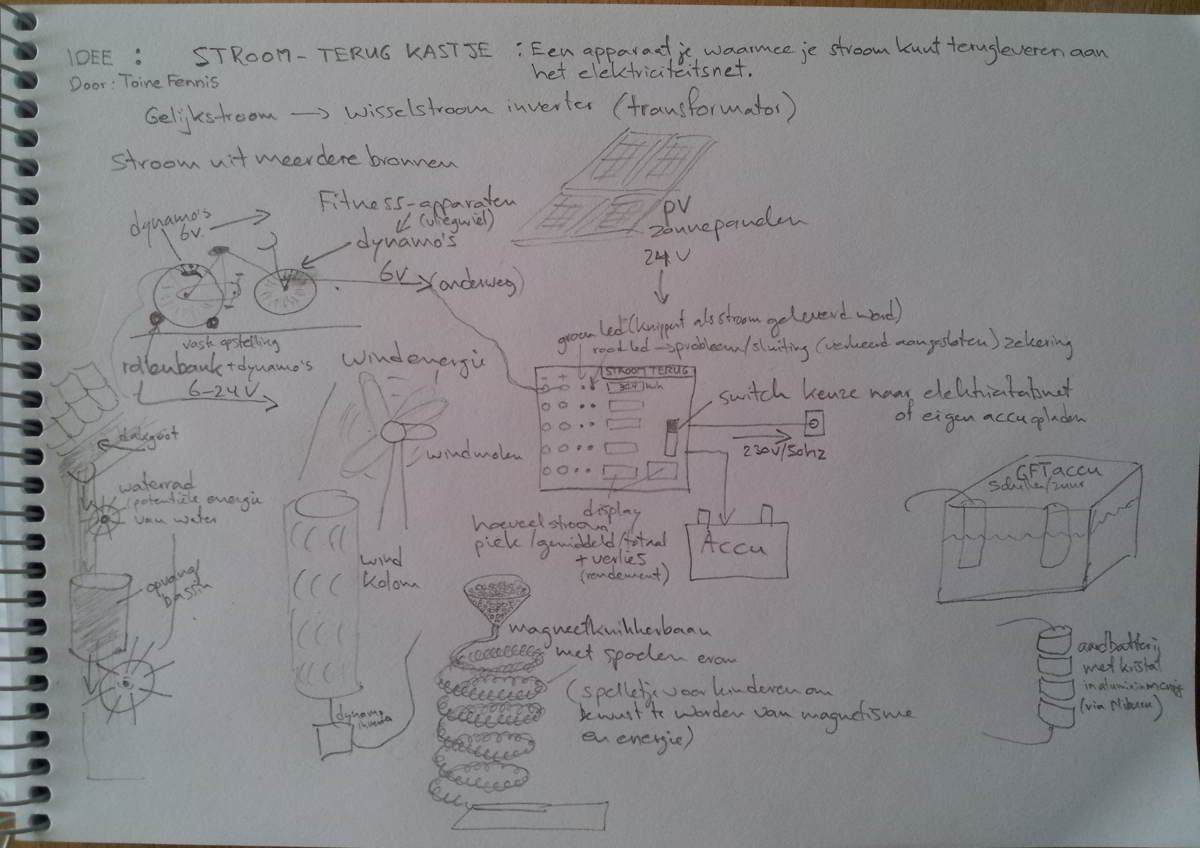 IDEE : STROOM-TERUG KASTJE : Een apparaatje waarmee je stroom kunt terugleveren aan
het elektriciteitsnet.
Door: Toine Fennis
Gelijkstroom → wisselstroom inverter (transformator)
Stroom uit meerdere bronnen
Fitness-apparaten
(vliegwiel)
dynamo's
6V.
dynamo's
6V
(onderweg)
PV
zonnepanelen
24V
vaste opstelling
rollenbank + dynamo's
6-24V
groen led (knippert als stroom geleverd word)
rood led → probleem/sluiting (verkeerd aangesloten) zekering
STROOM TERUG
+
kwh
switch keuze naar elektriciteitsnet
of eigen accu opladen
230V/50hz
windenergie
windmolen
dakgoot
waterrad
potentiële energie
van water
opvang
bassin
wind
kolom
dynamo
display
hoeveel stroom
piek/gemiddeld/totaal
+ verlies
(rendement)
Accu
GFT accu
schillen/zuur
magneetknikkerbaan
met spoelen erom
(spelletje voor kinderen om
bewust te worden van magnetisme
en energie)
aardbatterij
met kristal
in aluminium